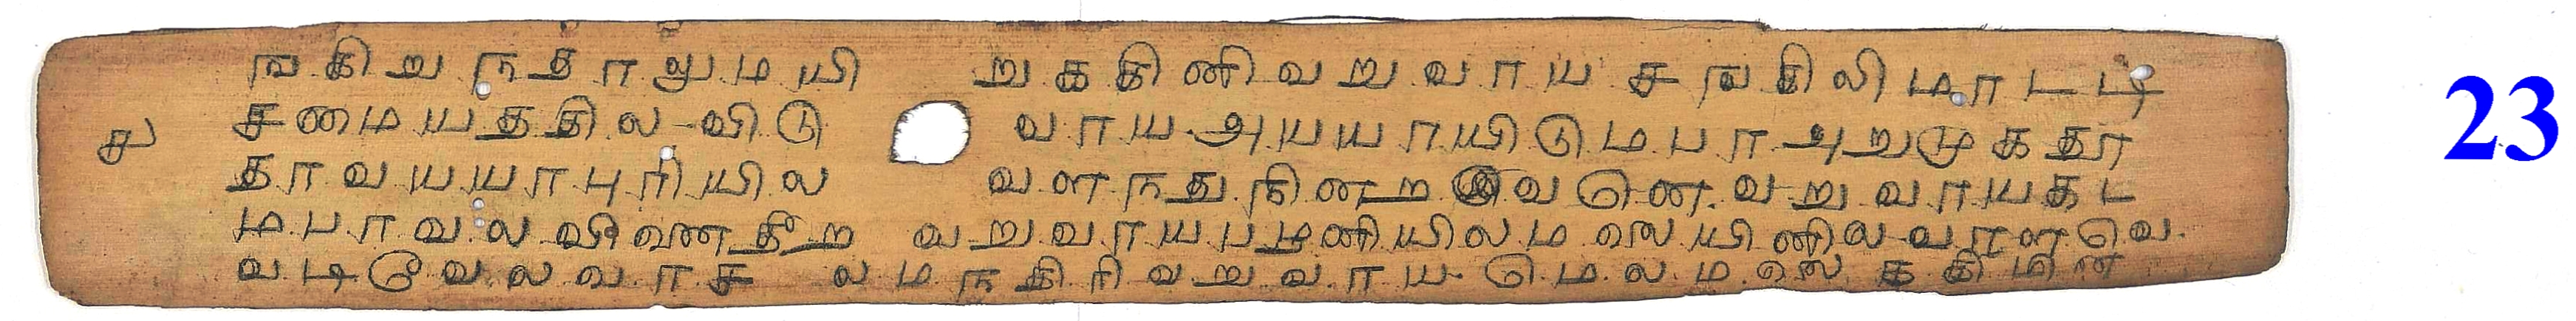 ஙகிறுநதாலுமயிறுககிணிவறுவாயசஙகிலிமாடடி
சு
சமையததிலவிடுவாயஅயயாயிடுமபாஅறுமுகதா
தாவயயாபுரியிலவளநதுநினறஇவணெவறுவாயகட
மபாவலவிணைதீறவறுவாயபழனியிலமலையிணிலவாளவெ
வடிவேலவாசலமாநகிரிவறுவாயமெலமலைககிமின
23